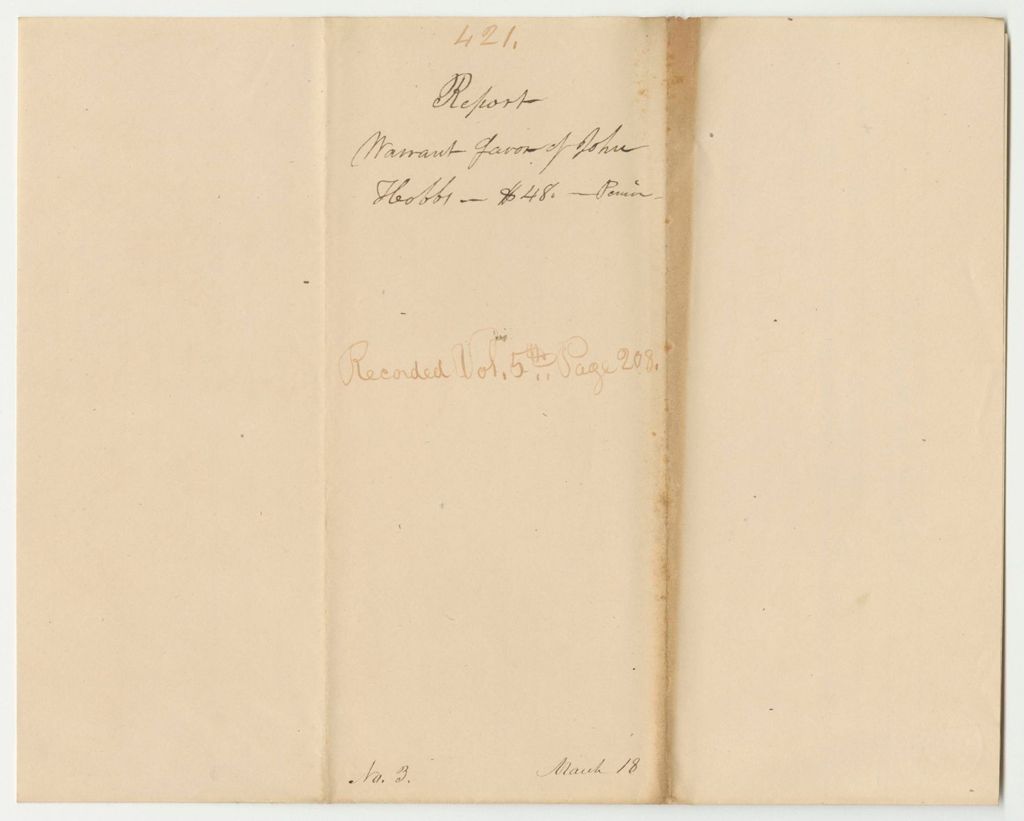 421.
Report
Warrant favor of John
Hobbs — $48. —
Recorded Vol. 5th Page 208.
No. 3. March 18